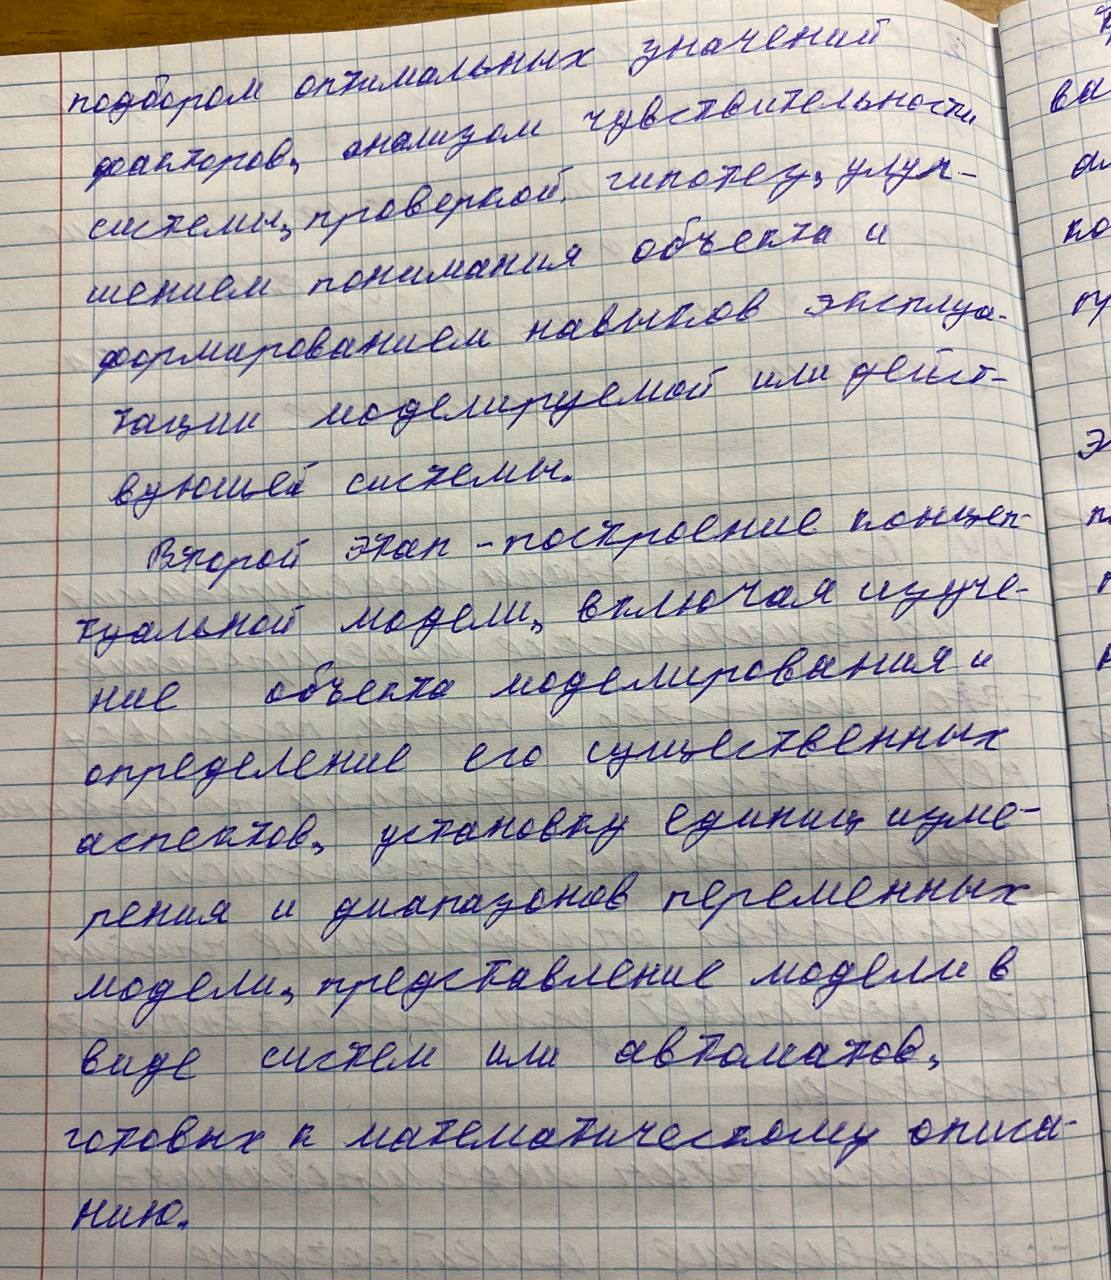 подбором оптимальных значений
факторов, анализом чувствительности
системы, проверкой гипотез, улуч-
шением понимания объекта и
формированием навыков эксплуа-
тации моделируемой или дейст-
вующей системы.
Второй этап - построение концеп-
туальной модели, включая изуче-
ние объекта моделирования и
определение его существенных
аспектов, установку единиц изме-
рения и диапазонов переменных
модели, представление модели в
виде систем или автоматов,
готовых к математическому описа-
нию.